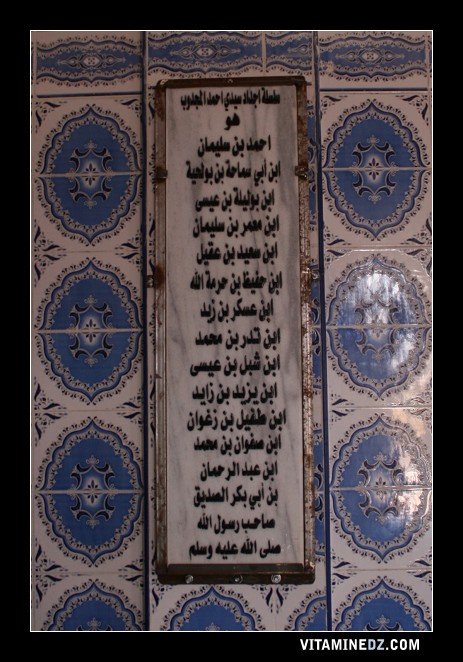 سلسلة اجداد سيدي احمد المجذوب
هو
احمد بن سليمان
ابن أبي سماحة بن بولحية
ابن بوليلة بن عيسى
ابن معمر بن سليمان
ابن سعيد بن عقيل
ابن حفيظ بن حرمة الله
ابن عسكر بن زيد
ابن تدر بن محمد
ابن شبل بن عيسى
ابن يزيد بن زايد
ابن طفيل بن زغوان
ابن صفوان بن محمد
ابن عبد الرحمان
بن أبي بكر الصديق
صاحب رسول الله
صلى الله عليه وسلم
VITAMINEDZ.COM